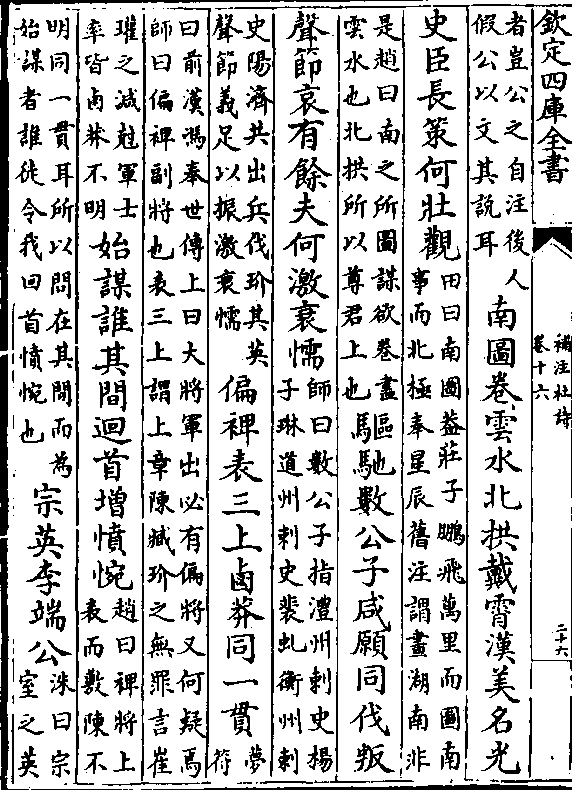 欽定四庫全書
補注杜詩
卷十六
二十六
者豈公之自注後人
假公以文其說耳
南圖卷雲水北拱戴霄漢美名光
史臣長策何壯觀
田曰南圖蓋莊子鵬飛萬里而圖南
事而北極奉星辰舊注謂畫湖南非
是趙曰南之所圖謀欲卷盡
雲水也北拱所以尊君上也
驅馳數公子咸願同伐叛
聲節哀有餘夫何激衰懦
師曰數公子指澧州刺史楊
子琳道州刺史裴虬衡州刺
史陽濟共出兵伐玠其英
聲節義足以振激衰懦
偏裨表三上鹵莽同一貫
夢
符
曰前漢馮奉世傳上曰大將軍出必有偏將又何疑焉
師曰偏裨副將也表三上謂上章陳臧玠之無罪言崔
瓘之減尅軍士
率皆鹵莽不明
始謀誰其間迴首增憤惋
趙曰裨將上
表而敷陳不
明同一貫耳所以問在其間而為
始謀者誰徒令我回首憤惋也
宗英李端公
洙曰宗
室之英